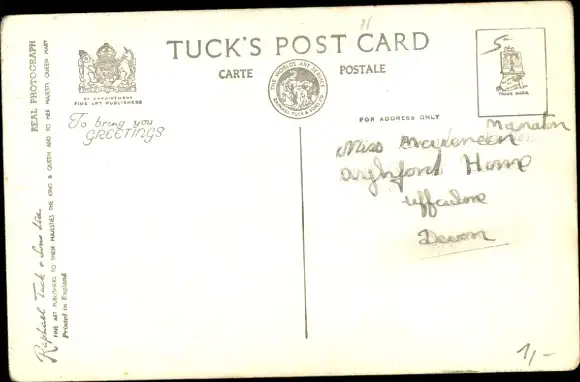 REAL PHOTOGRAPH
Raphael Tuck & Sons Ltd.
FINE ART PUBLISHERS TO THEIR MAJESTIES THE KING & QUEEN AND TO HER MAJESTY QUEEN MARY
Printed in England
BY APPOINTMENT
FINE ART PUBLISHERS
To bring you
GREETINGS
TUCK'S POST CARD
CARTE POSTALE
THE WORLD'S ART SERVICE
RAPHAEL TUCK & SONS LTD
FOR ADDRESS ONLY
TRADE MARK
5-
Manaton
Miss
Home
Uffculme
Devon
1/-